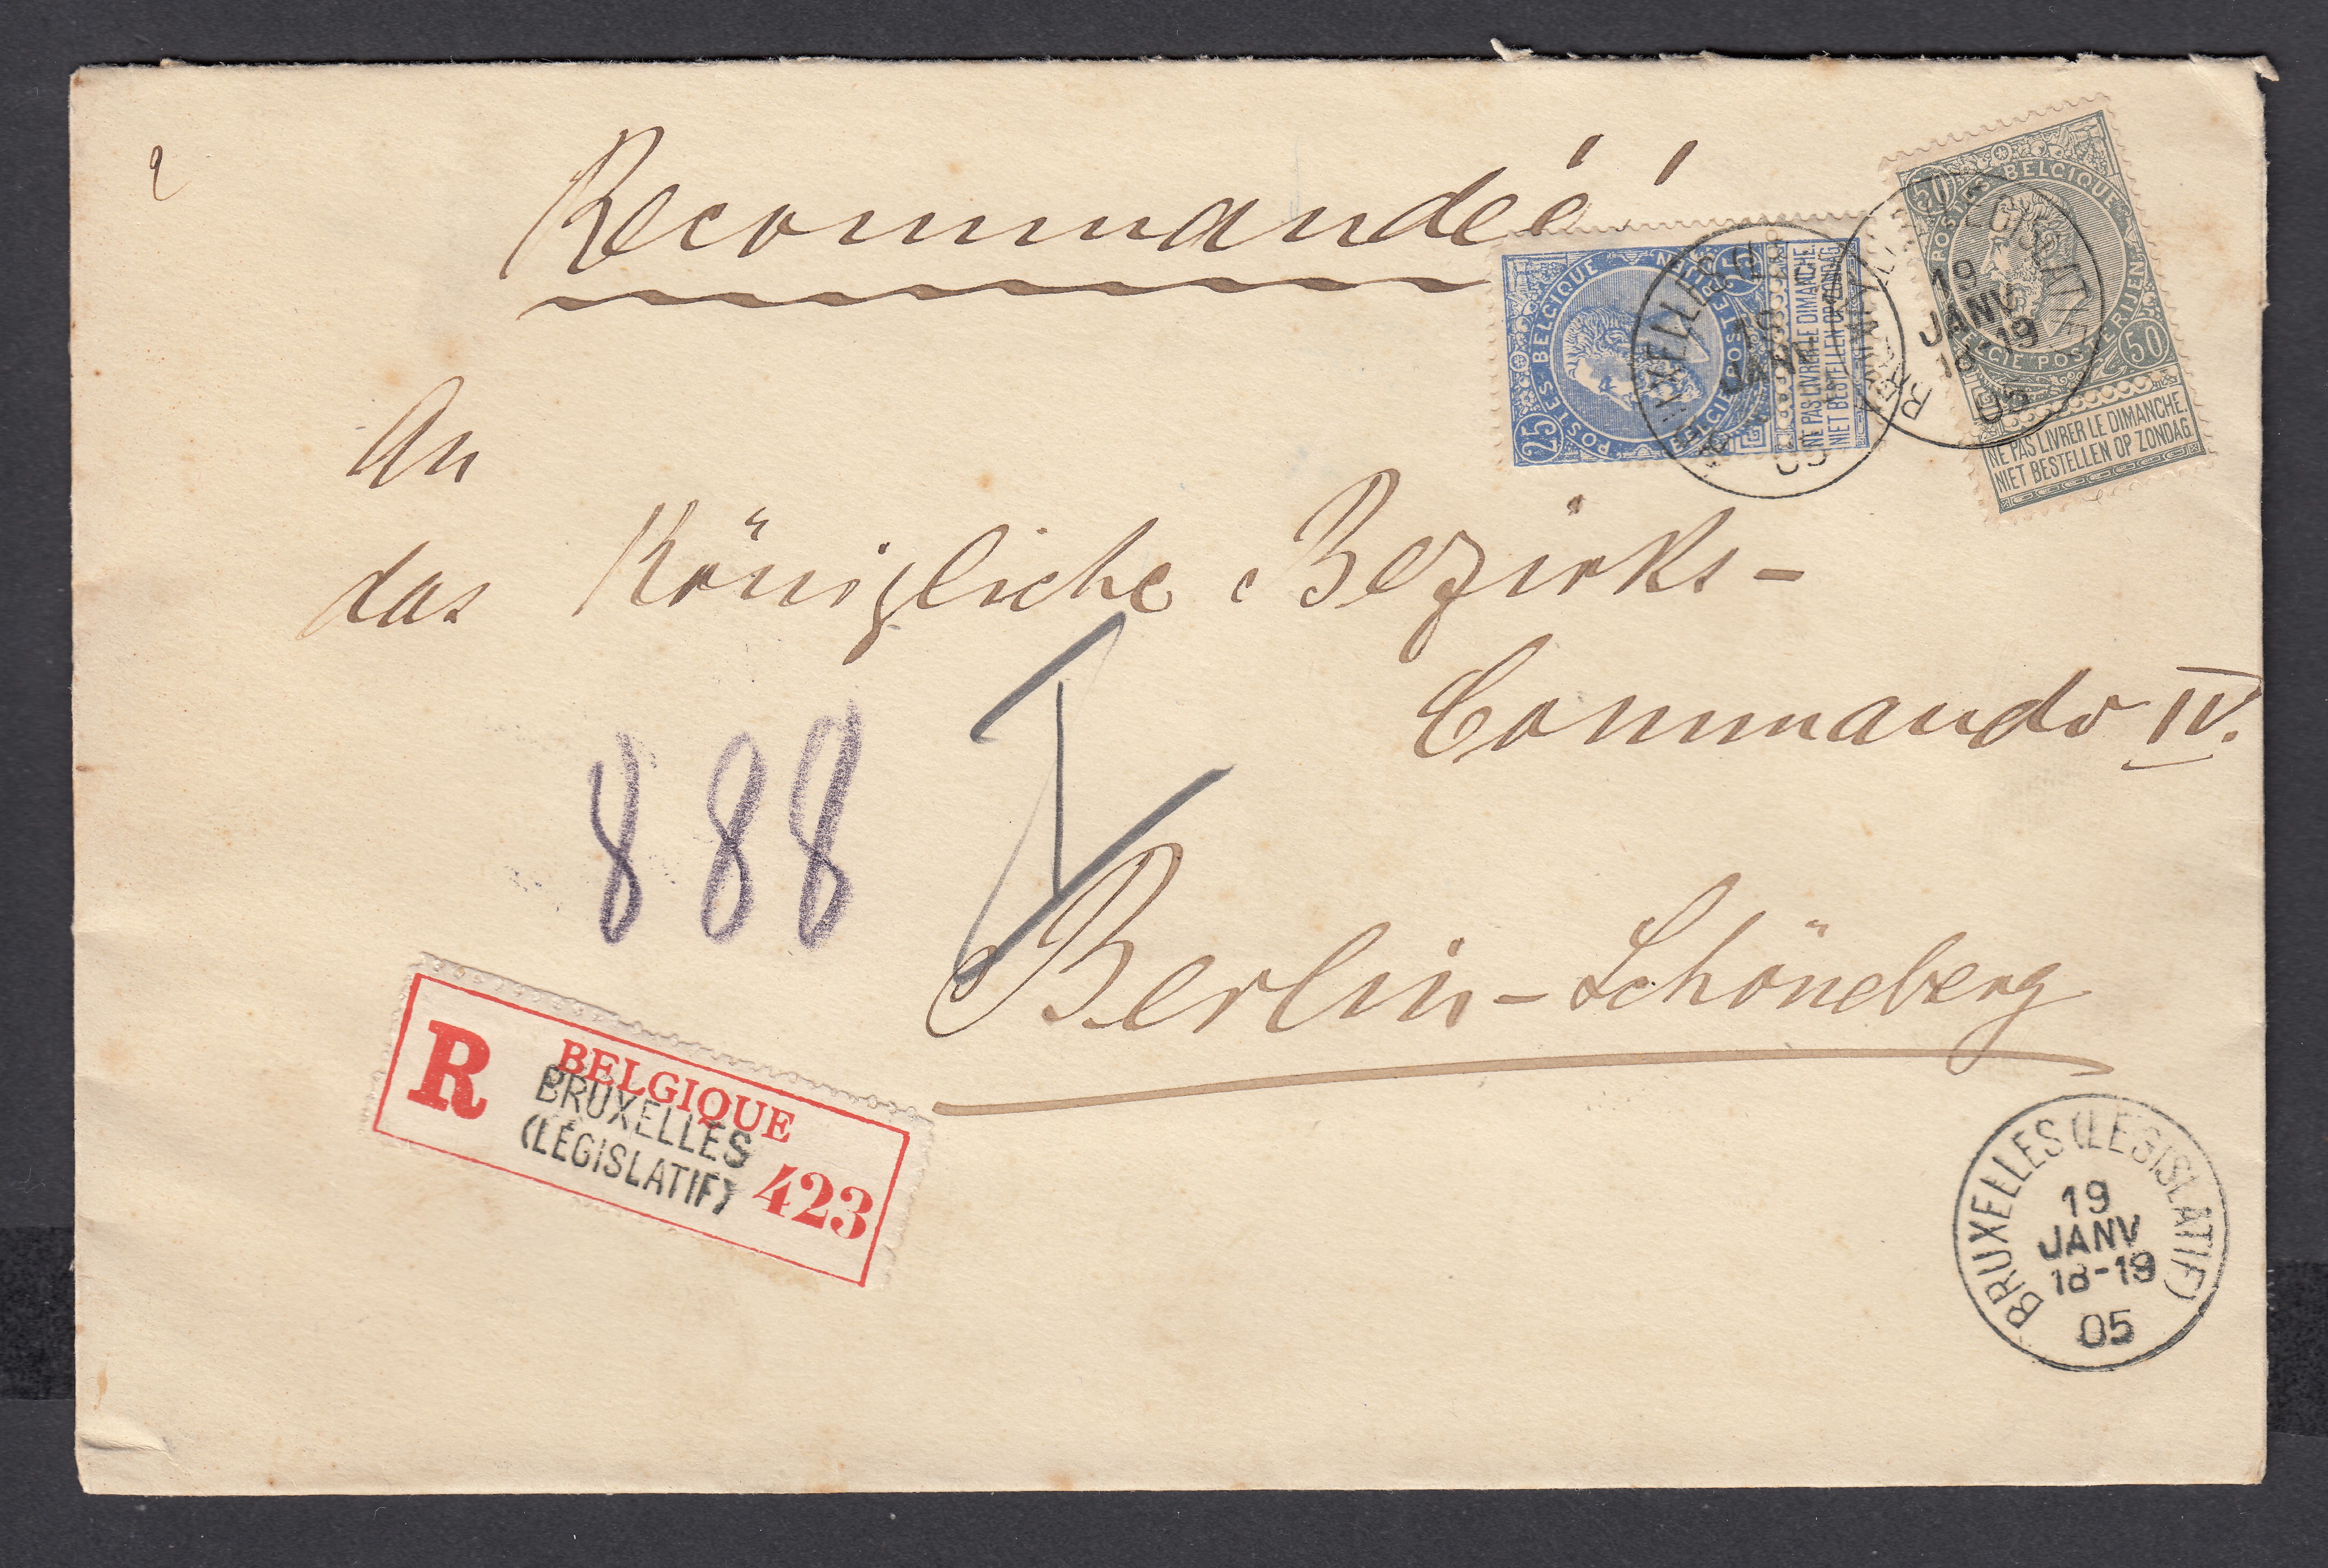 Recommandée
An
das Königliche Bezirks-
Commando IV.
Berlin-Schöneberg
888
R BELGIQUE
BRUXELLES
(LÉGISLATIF)
423
25
POSTES BELGIQUE
BELGIE POSTERIJEN
NE PAS LIVRER LE DIMANCHE.
NIET BESTELLEN OP ZONDAG
50 POSTES BELGIQUE
BELGIE POSTERIJEN 50
NE PAS LIVRER LE DIMANCHE.
NIET BESTELLEN OP ZONDAG
19
JANV
18-19
05
BRUXELLES (LEGISLATIF)
19
JANV
18-19
05